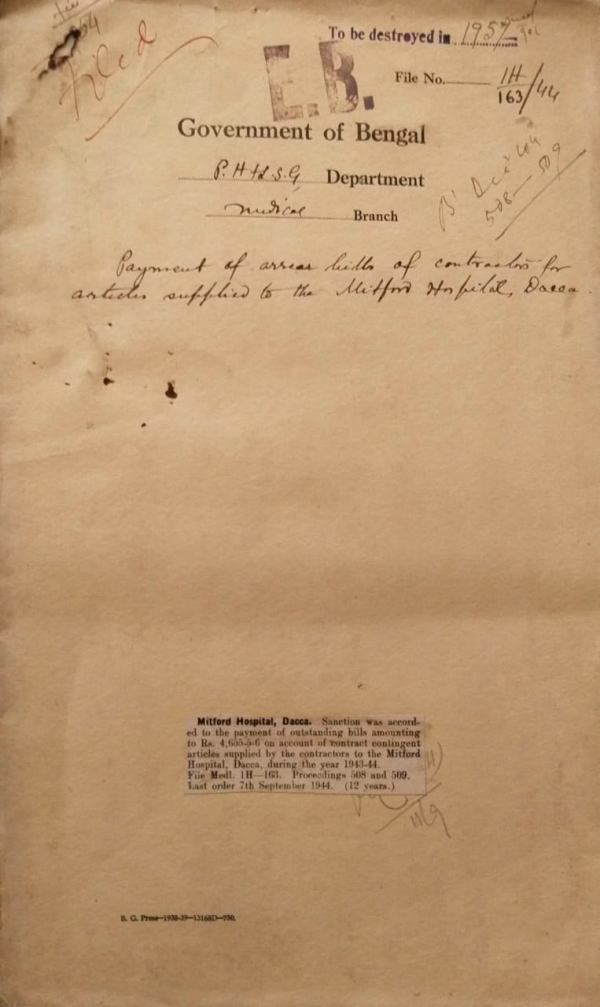 To be destroyed in 1957
Filed
E.B.
File No. 1H/163/44
Government of Bengal
P.H & L.S.G, Department
Medical Branch
'B' Dec '44
508—509
Payment of arrear bills of contractors for
articles supplied to the Mitford Hospital, Dacca.
Mitford Hospital, Dacca. Sanction was accord-
ed to the payment of outstanding bills amounting
to Rs. 4,655-5-6 on account of contract contingent
articles supplied by the contractors to the Mitford
Hospital, Dacca, during the year 1943-44.
File Medl. 1H—163. Proceedings 508 and 509.
Last order 7th September 1944. (12 years.)
B. G. Press—1938-39—13168D—700.